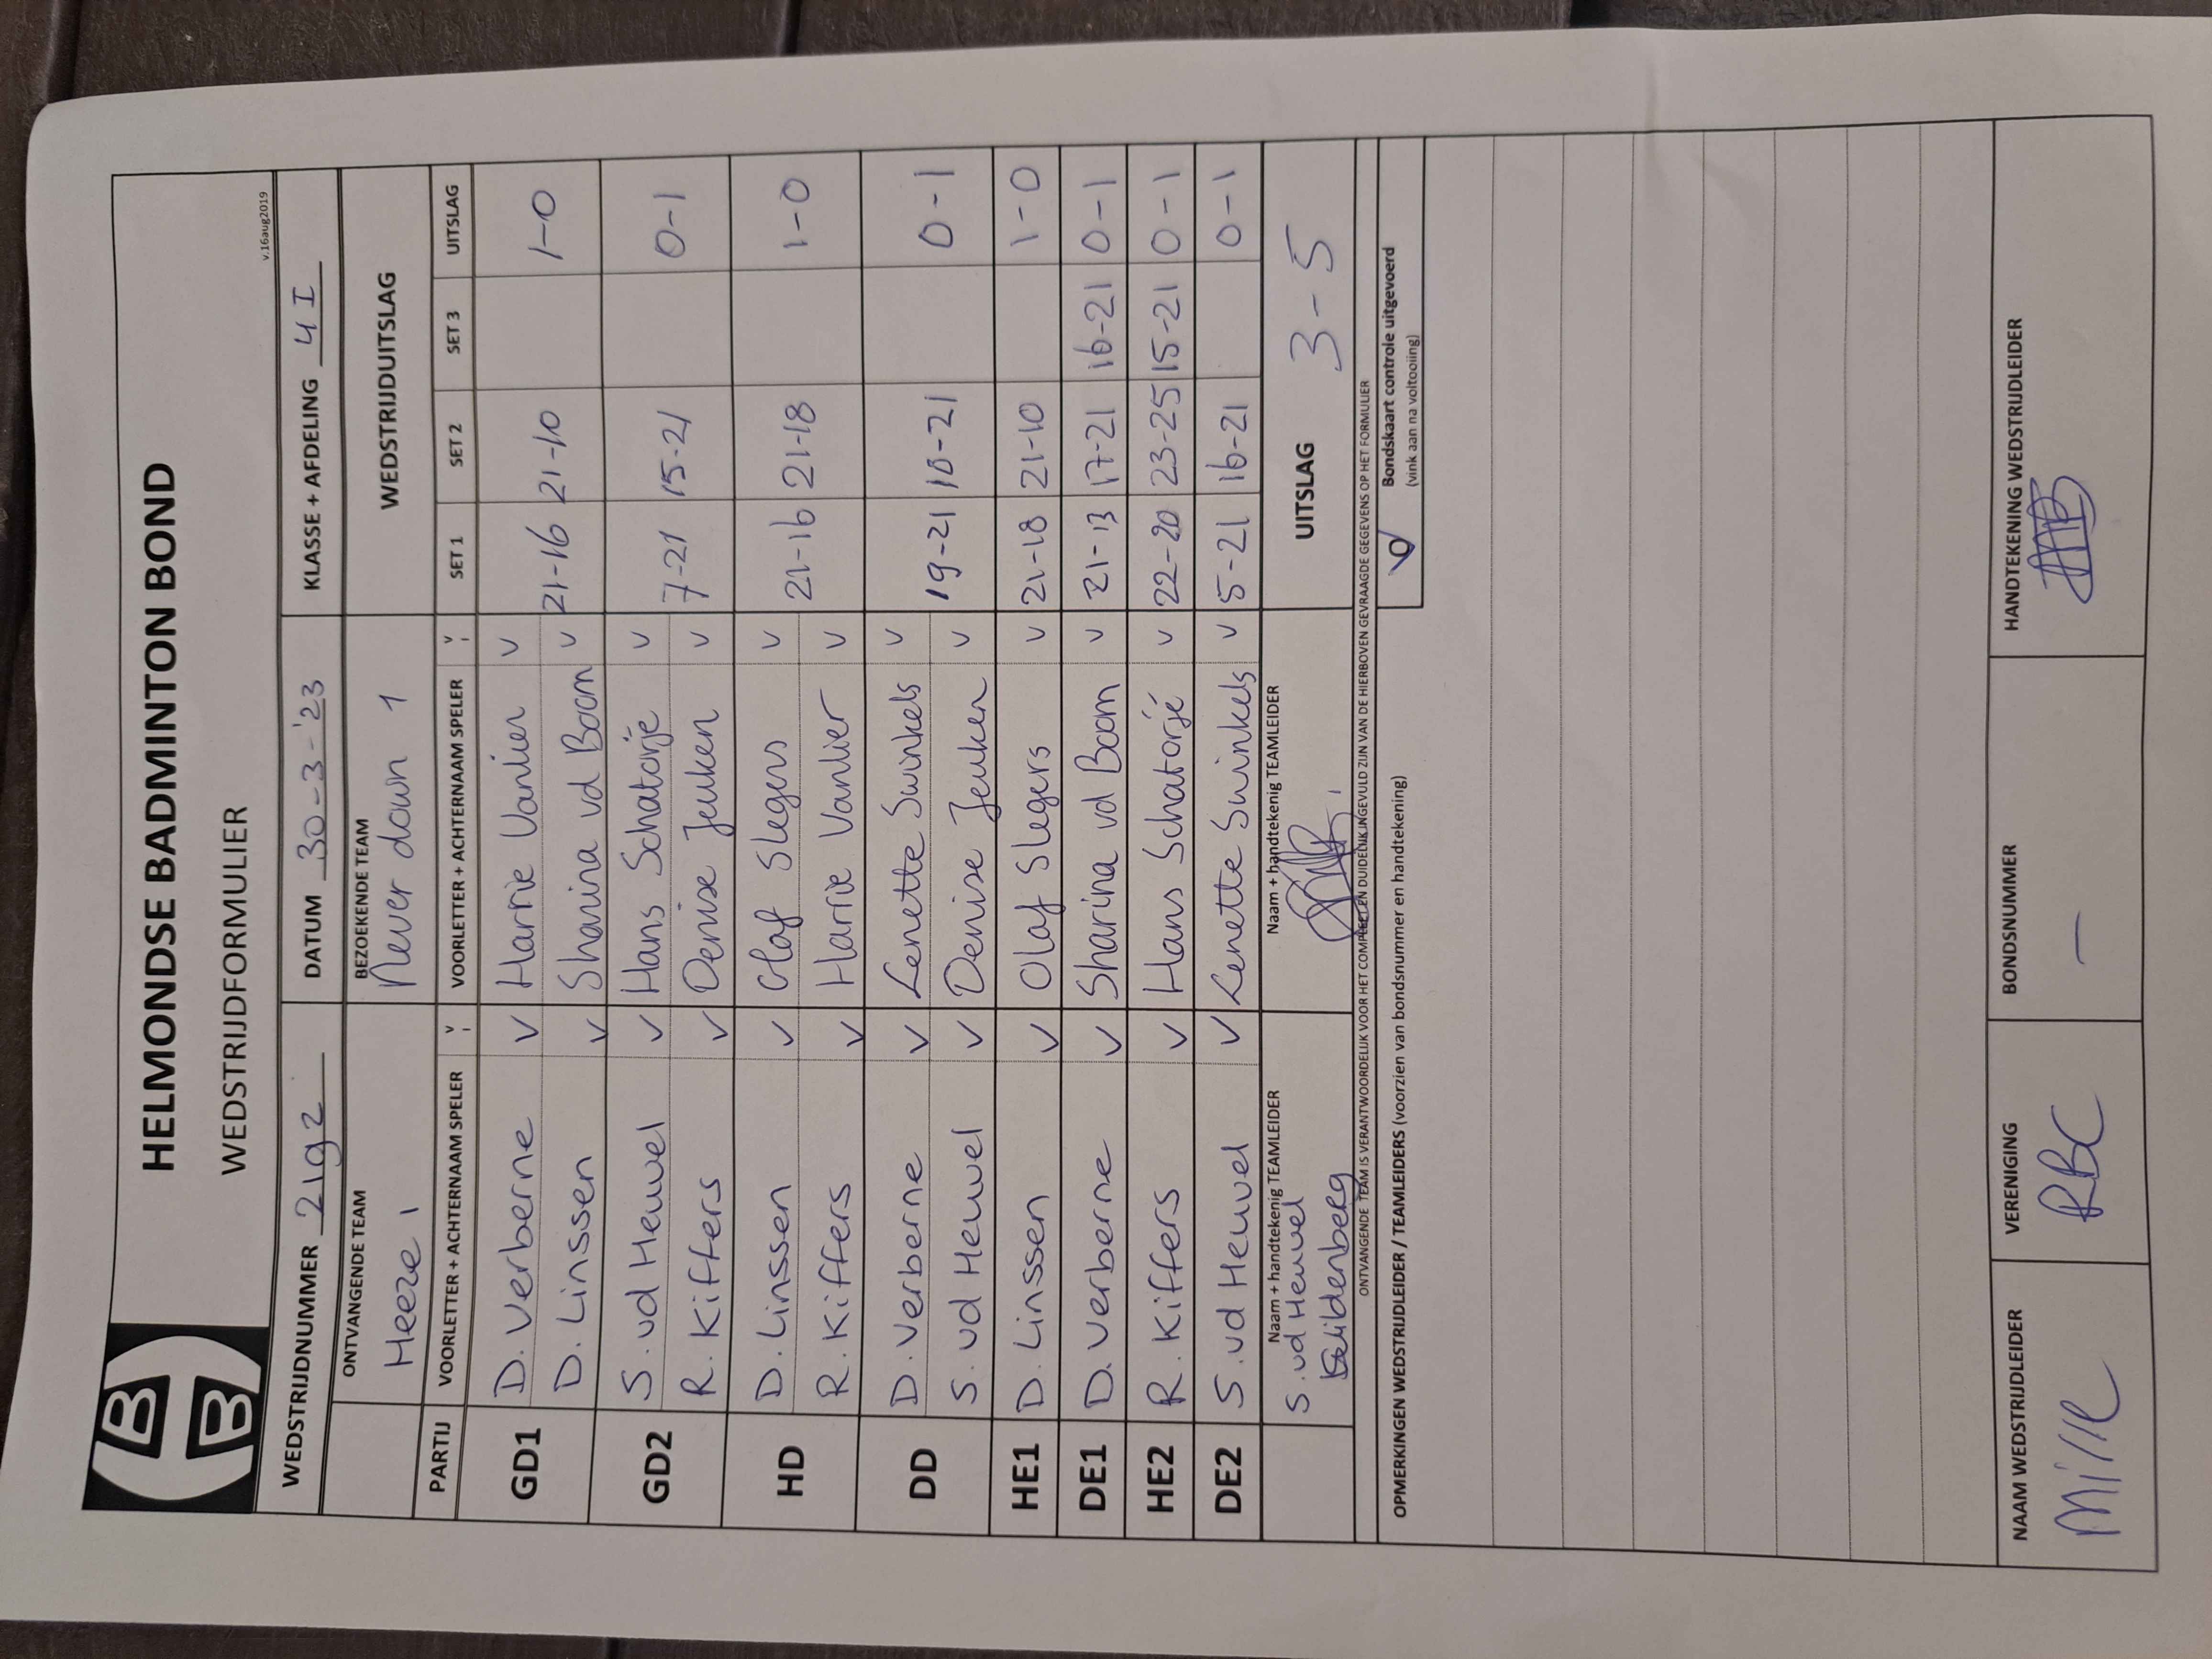 HELMONDSE BADMINTON BOND
WEDSTRIJDFORMULIER
v.16aug2019
WEDSTRIJDNUMMER 2192 DATUM 30-3-'23 KLASSE + AFDELING 4 I
ONTVANGENDE TEAM BEZOEKENDE TEAM WEDSTRIJDUITSLAG
Heeze 1 Never down 1
PARTIJ VOORLETTER + ACHTERNAAM SPELER V VOORLETTER + ACHTERNAAM SPELER V SET 1 SET 2 SET 3 UITSLAG
GD1 D. Verberne V Harrie Vanlier V 21-16 21-10 1-0
D. Linssen V Sharina vd Boom V
GD2 S vd Heuvel V Hans Schatorjé V 7-21 15-21 0-1
R. Kiffers V Denise Jeuken V
HD D. Linssen V Olaf Slegers V 21-16 21-18 1-0
R. Kiffers V Harrie Vanlier V
DD D. Verberne V Lenette Swinkels V 19-21 10-21 0-1
S. vd Heuvel V Denise Jeuken V
HE1 D. Linssen V Olaf Slegers V 21-18 21-10 1-0
DE1 D. Verberne V Sharina vd Boom V 21-13 17-21 16-21 0-1
HE2 R. Kiffers V Hans Schatorjé V 22-20 23-25 15-21 0-1
DE2 S. vd Heuvel V Lenette Swinkels V 5-21 16-21 0-1
Naam + handtekenig TEAMLEIDER Naam + handtekenig TEAMLEIDER UITSLAG 3-5
S. vd Heuvel
ONTVANGENDE TEAM IS VERANTWOORDELIJK VOOR HET COMPLEET EN DUIDELIJK INGEVULD ZIJN VAN DE HIERBOVEN GEVRAAGDE GEGEVENS OP HET FORMULIER
OPMERKINGEN WEDSTRIJDLEIDER / TEAMLEIDERS (voorzien van bondsnummer en handtekening)
Bondskaart controle uitgevoerd
(vink aan na voltooiing)
NAAM WEDSTRIJDLEIDER VERENIGING BONDSNUMMER HANDTEKENING WEDSTRIJDLEIDER
RBC –